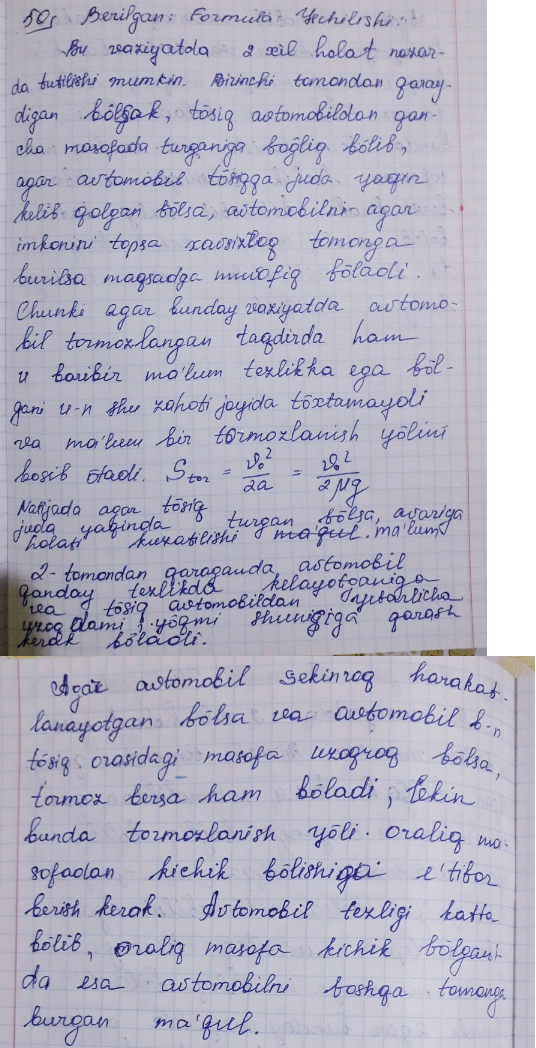 50. Berilgan: Formula: Yechilishi:
Bu vaziyatda 2 xil holat nazar-
da tutilishi mumkin. Birinchi tomondan qaray-
digan bõlsak, tõsiq avtomobildan qan-
cha masofada turganiga bog̃liq bõlib,
agar avtomobil tõsiqqa juda yaqin
kelib qolgan bõlsa, avtomobilni agar
imkonini topsa xavsizloq tomonga
burilsa maqsadga muvofiq bõladi.
Chunki agar bunday vaziyatda avtomo-
bil tormozlangan taqdirda ham
u baribir ma'lum tezlikka ega bõl-
gani u-n shu zahoti joyida tõxtamaydi
va ma'lum bir tormozlanish yõlini
bosib õtadi. S_tor = v₀²/2a = v₀²/2μg
Natijada agar tõsiq
juda yaqinda turgan bõlsa, avariya
holati kuzatilishi ma'qul. ma'lum
2-tomondan qaraganda avtomobil
qanday tezlikda kelayotganiga
va tõsiq avtomobildan yetarlicha
uzoqdami, yõqmi shungiga qarash
kerak bõladi.
Agar avtomobil sekinroq harakat-
lanayotgan bõlsa va avtomobil b-n
tõsiq orasidagi masofa uzoqroq bõlsa,
tormoz bersa ham bõladi, lekin
bunda tormozlanish yõli oraliq ma-
sofadan kichik bõlishiga e'tibor
berish kerak. Avtomobil tezligi katta
bõlib, oraliq masofa kichik bõlgan-
da esa avtomobilni boshqa tomonga
burgan ma'qul.